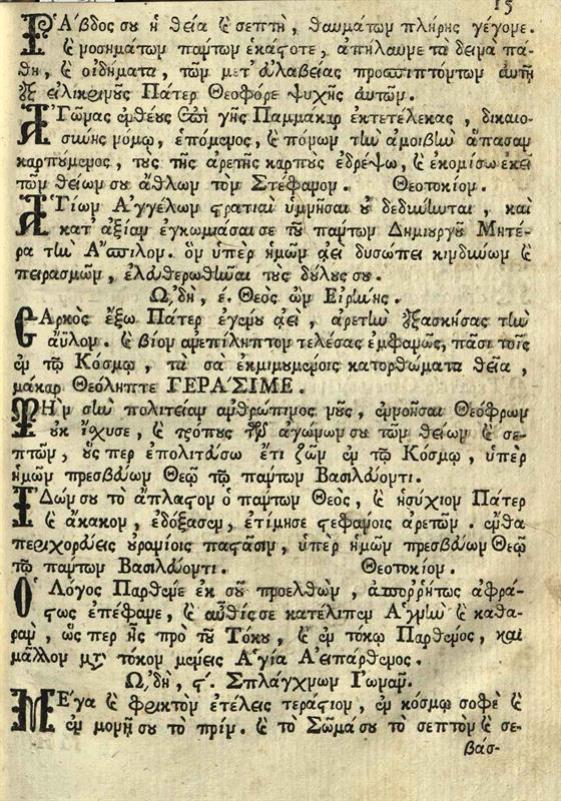 15
ΡἍβδος σου ἡ θεία καὶ σεπτὴ, θαυμάτων πλήρης γέγονε.
καὶ νοσημάτων παντων ἑκάστοτε, ἀπήλαυνε τὰ δεινὰ πά-
θη, καὶ οἰδήματα, τῶν μετ' εὐλαβείας προσπιπτόντων αὐτῇ
ἐξ εἰλικρινοῦς Πάτερ Θεοφόρε ψυχῆς αὐτῶν.
ἈΓῶνας ἐνθέους ἐπὶ γῆς Παμμάκαρ ἐκτετέλεκας, δικαιο-
σύνης νόμῳ, ἑπόμενος, καὶ πόνων τὴν ἀμοιβὴν ἅπασαν
καρπούμενος, τοὺς τῆς ἀρετῆς καρποὺς ἐδρέψω, καὶ ἐκομίσω ἐκεῖ
τῶν θείων σου ἄθλων τὸν Στέφανον. Θεοτοκίον.
ἈΓίων Ἀγγέλων στρατιαὶ ὑμνῆσαι οὐ δεδύνηνται, καὶ
κατ' ἀξίαν ἐγκωμιάσαι σε τοῦ παντων Δημιουργοῦ Μητέ-
ρα τὴν Ἄσπιλον. ὃν ὑπὲρ ἡμῶν ἀεὶ δυσώπει κινδύνων καὶ
πειρασμῶν, ἐλευθερωθῆναι τοὺς δούλους σου.
Ὠδὴ, έ. Θεὸς ὢν Εἰρήνης.
ΣΑρκὸς ἔξω Πάτερ ἐγένου ἀεὶ, ἀρετὴν ἐξασκήσας τὴν
ἄϋλον. καὶ βίον ἀνεπίληπτον τελέσας ἐμφανῶς, πᾶσι τοῖς
ἐν τῷ Κόσμῳ, τὰ σὰ ἐκμιμουμένοις κατορθώματα θεῖα,
μάκαρ Θεόληπτε ΓΕΡΑΣΙΜΕ.
ΤΗν σὴν πολιτείαν ἀνθρώπινος νοῦς, ἐννοῆσαι Θεόφρων
οὐκ ἴσχυσε, καὶ τρόπους τῶν ἀγώνων σου τῶν θείων καὶ σε-
πτῶν, οὕς περ ἐπολιτεύσω ἔτι ζῶν ἐν τῷ Κόσμῳ, ὑπὲρ
ἡμῶν πρεσβεύων Θεῷ τῷ παντων Βασιλεύοντι.
ἸΔών σου τὸ ἄπλαστον ὁ παντων Θεὸς, καὶ ἡσύχιον Πάτερ
καὶ ἄκακον, ἐδόξασεν, ἐτίμησε στεφάνοις ἀρετῶν. ἔνθα
περιχορεύεις οὐρανίοις παστάσιν, ὑπὲρ ἡμῶν πρεσβεύων Θεῷ
τῷ παντων Βασιλεύοντι. Θεοτοκίον.
Ὁ Λόγος Παρθένε ἐκ σοῦ προελθὼν, ἀποῤῥήτως ἀφρά-
στως ἐπέφανε, καὶ αὖθίς σε κατέλιπεν Ἁγνὴν καὶ καθα-
ρὰν, ὥς περ ἦς πρὸ τοῦ Τόκου, καὶ ἐν τόκῳ Παρθένος, καὶ
μᾶλλον μετὰ τόκον μένεις Ἁγία Ἀειπάρθενος.
Ὠδὴ, ϛ΄. Σπλάγχνων Γωνᾶν.
ΜΕγα καὶ φρικτὸν ἐτέλεις τεράστιον, ἐν κόσμῳ σοφὲ καὶ
ἐν μονῇ σου τὸ πρίν. καὶ τὸ Σῶμά σου τὸ σεπτὸν καὶ σε-
βάσ-